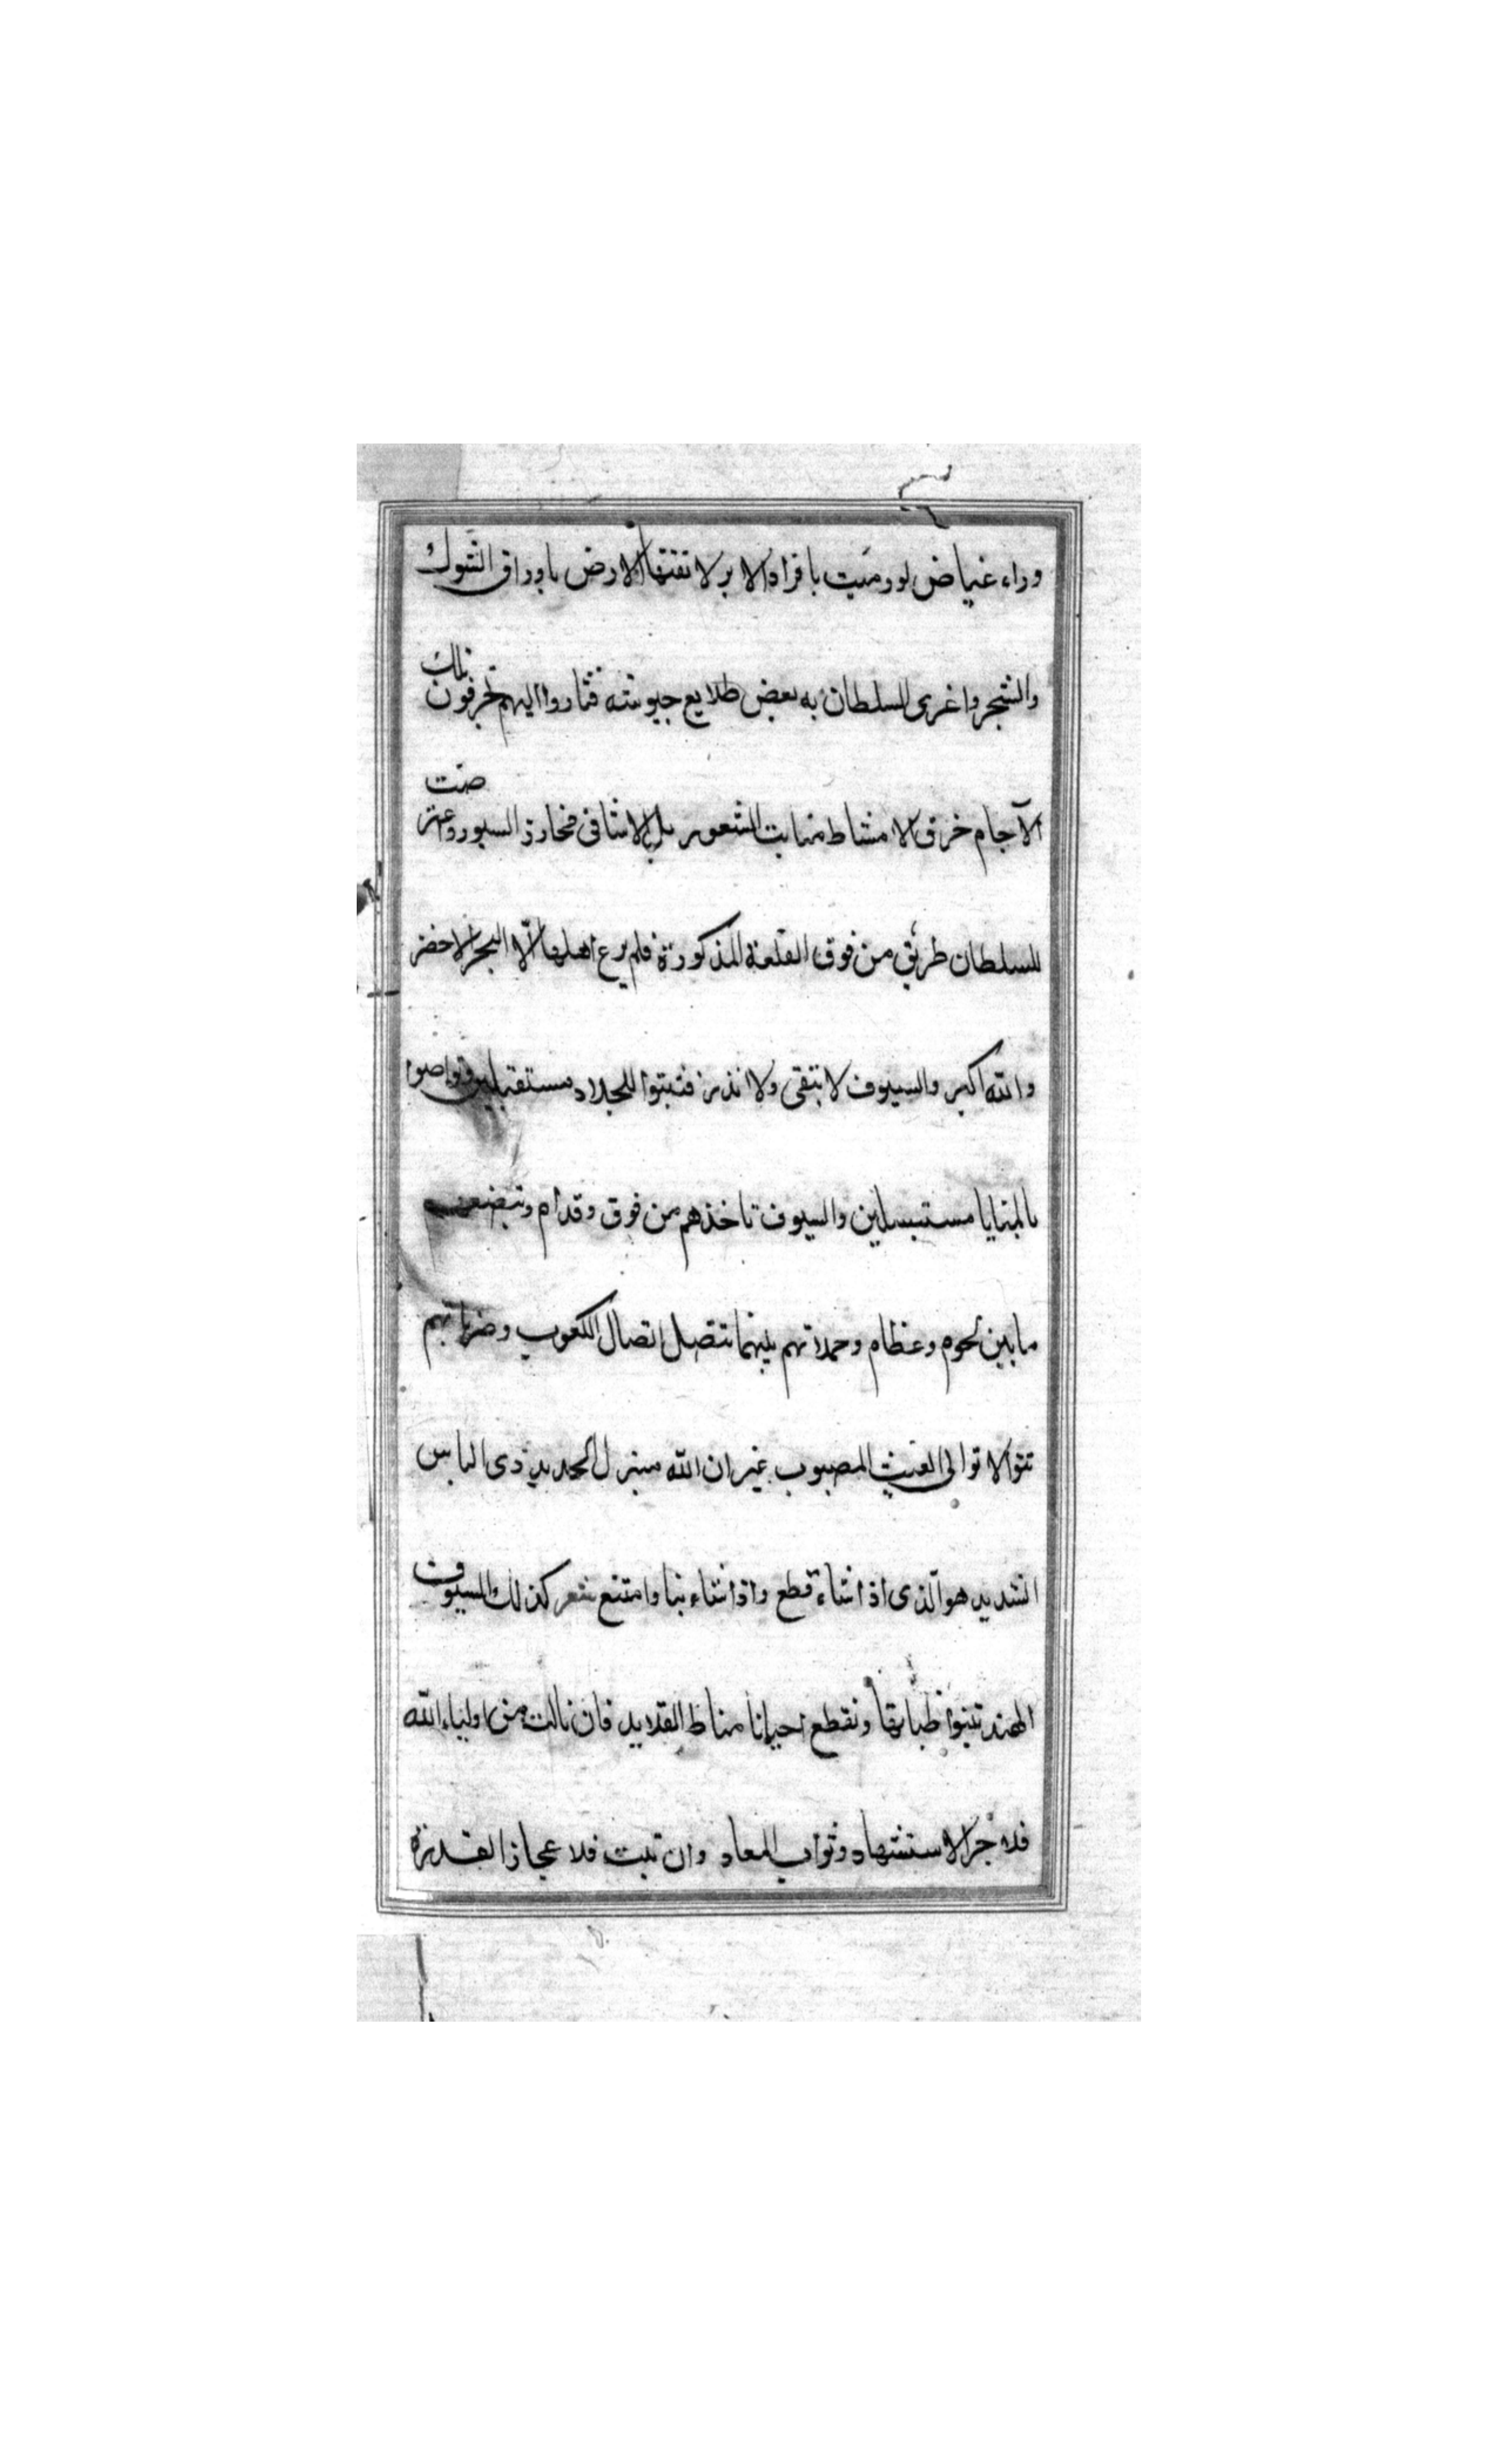 وراء غياض لو رميت بافراد الابر لا تقتها الارض باوراق الشوك
والشجر واغرى السلطان به بعض طلايع جيوشه فثاروا اليهم تخرفون تلك
الآجام خرق الامشاط منابت الشعور بل الاشافى مخارز السيور وعرضت
للسلطان طريق من فوق القلعة المذكورة فلم يرع اهلها الّا البحر الاخضر
والله اكبر والسيوف لا تبقى ولا تذر فثبتوا للجلاد مستقبلين وتواصوا
بالمنايا مستبسلين والسيوف تاخذهم من فوق وقدام وتبضعهم
ما بين لحوم وعظام وحملاتهم بينهما تتصل اتصال الكعوب وضرباتهم
تتوالا توالى الغيث المصبوب غير ان الله منزل الحديد ذى الباس
الشديد هو الّذى اذا شاء قطع واذا شاء نبا وامتنع شعر كذلك السيوف
الهند تنبوا ظباتها وتقطع احيانا مناط القلايد فان نالت من اولياء الله
فلاجر الاستشهاد وثواب المعاد وان نبت فلاعجاز القدرة